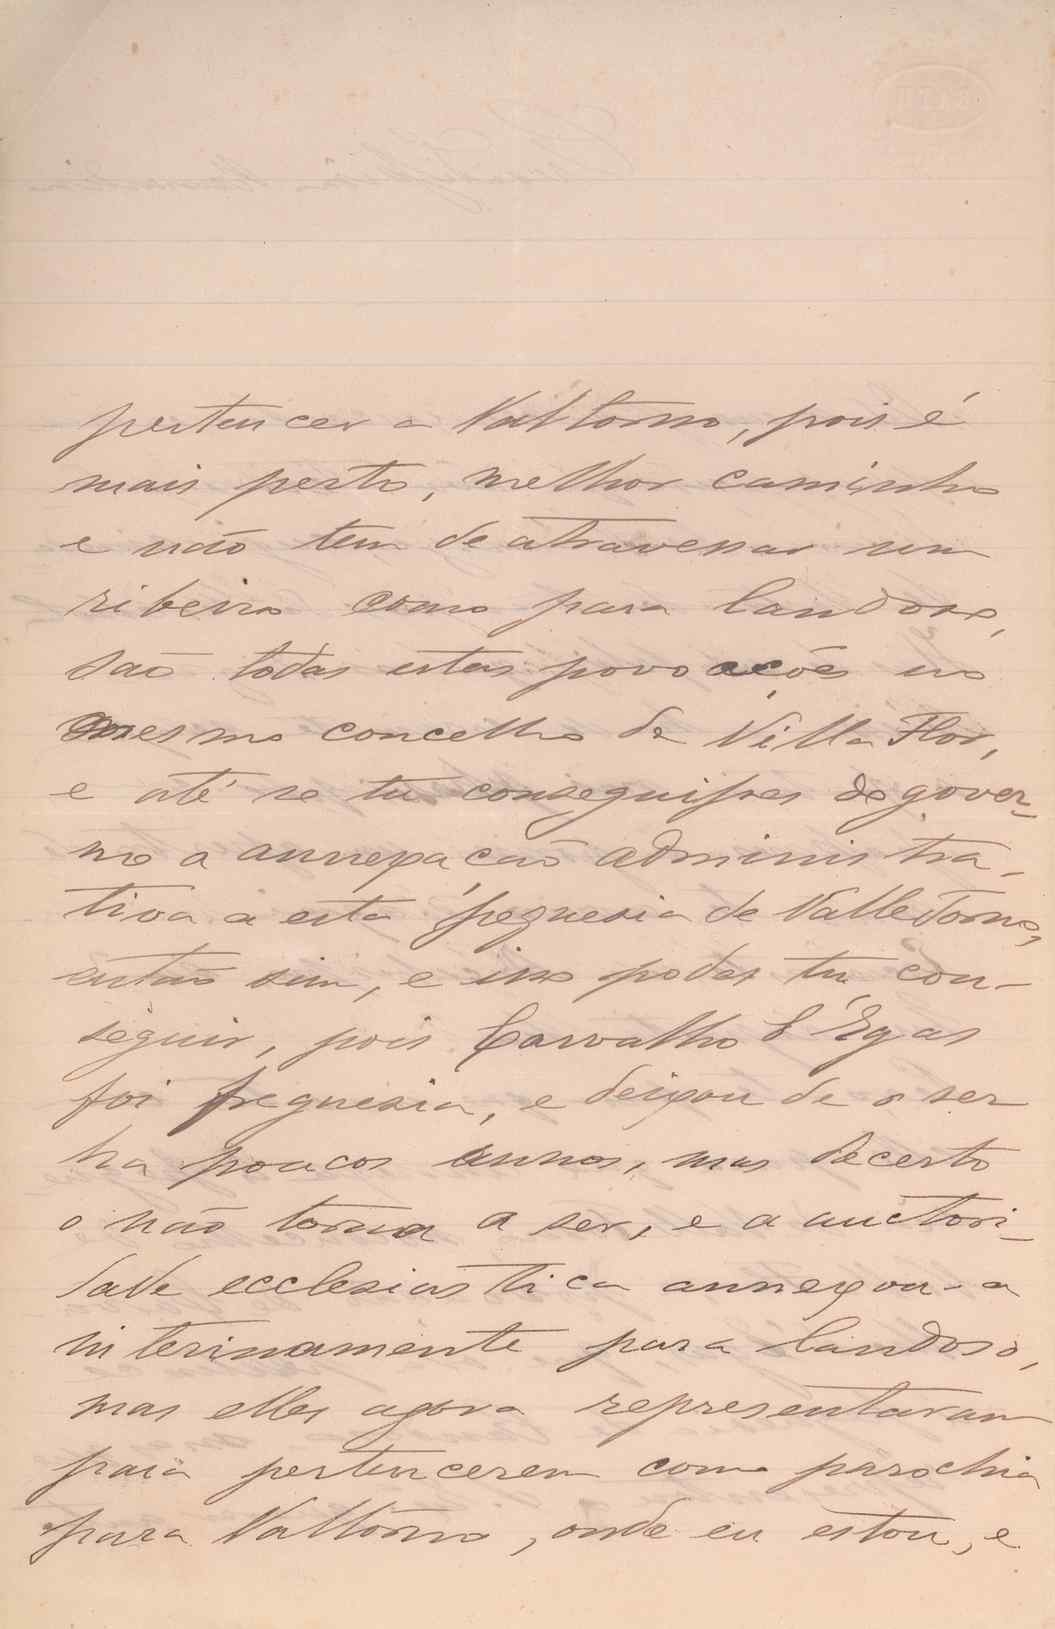 pertencer a Valtorno, pois é
mais perto, melhor caminho
e não tem de atravessar um
ribeiro como para Candoso,
são todas estas povoações no
mesmo concelho de Villa Flor,
e até se tu conseguisses do gover-
no a annexação administra-
tiva a esta freguesia de Valle Torno,
então sim, e isso podes tu con-
seguir, pois Carvalho d'Egas
foi freguesia, e deixou de o ser
ha poucos annos, mas decerto
o não torna a ser, e a auctori-
dade ecclesiastica annexou-a
interinamente para Candoso,
mas elles agora representaram
para pertencerem como parochia
para Valtorno, onde eu estou, e